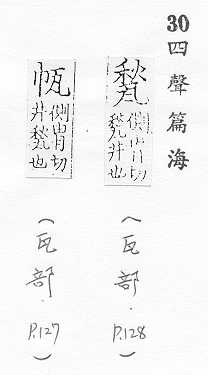 30四聲篇海
側冑切
甃井也
（瓦部．P.128）
側冑切
井甃也
（瓦部．P.127）